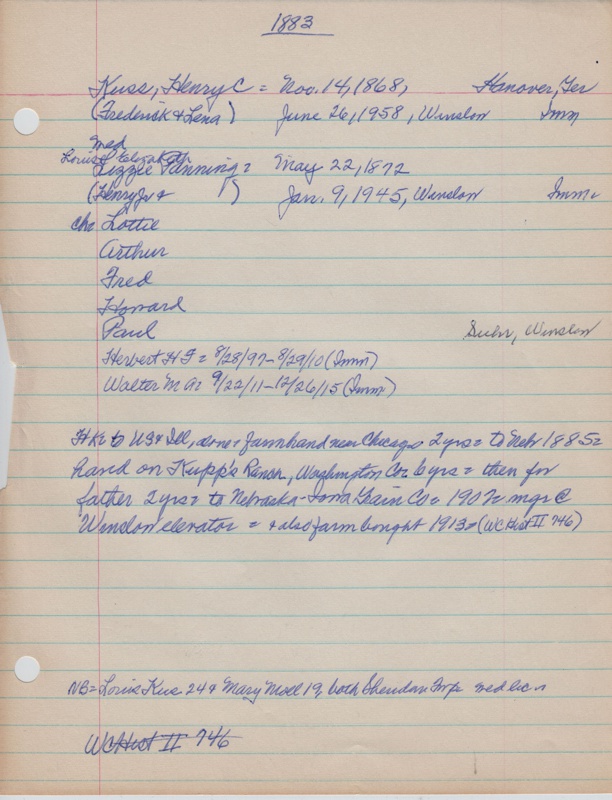 1883
Kuss, Henry C = Nov. 14, 1868, Hanover, Ger
(Frederick & Lena) June 26, 1958, Winslow Imm
med
Louise Elizabeth
Lizzie Panning = May 22, 1872
(Henry Jr & ) Jan. 9, 1945, Winslow Imm
ch = Lottie
Arthur
Fred
Howard
Paul Suhr, Winslow
Herbert H F = 8/28/97 - 8/29/10 (Imm)
Walter M A = 9/22/11 - 12/26/15 (Imm)
HK to US & Ill, alone = farmhand near Chicago 2 yrs = to Nebr 1885 =
hand on Kupp's Ranch, Washington Co = 6 yrs = then for
father 2 yrs = to Nebraska-Iowa Grain Co = 1902 = mgr @
Winslow elevator = & also farm bought 1913 = (WC Hist II 746)
NB = Louis Kus 24 & Mary Moll 19, both Sheridan Twp med lic
WC Hist II 746